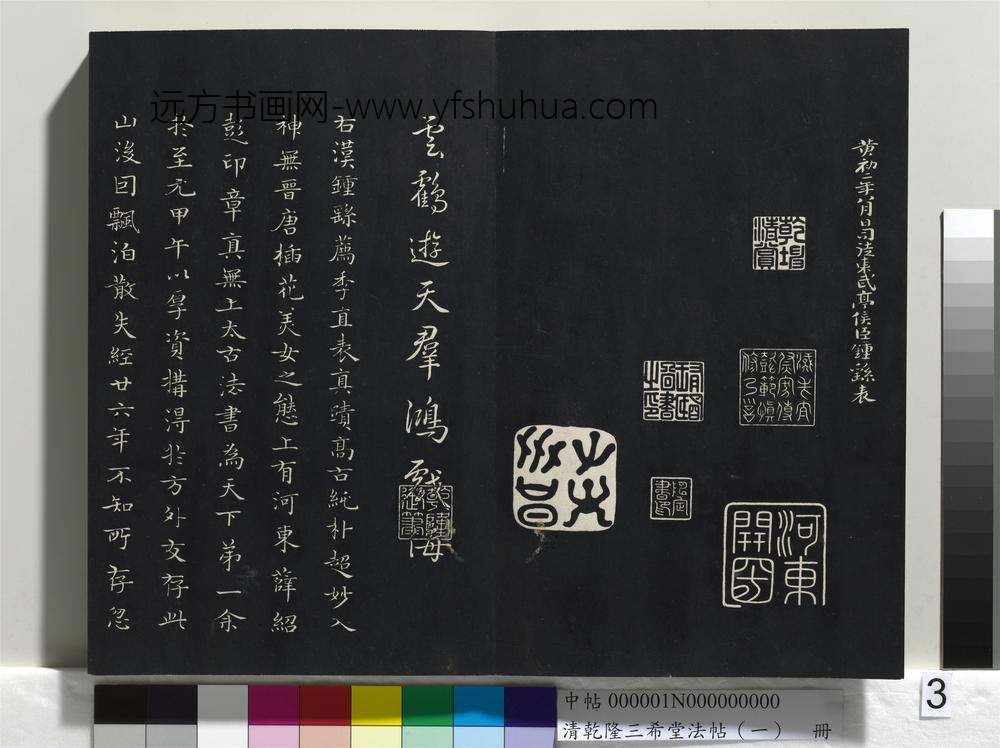 远方书画网-www.yfshuhua.com
黄初二年八月日司徒東武亭侯臣鍾繇表
乾隆清賞
河東開國
雲鶴遊天羣鴻戲海
右漢鍾繇薦季直表真蹟高古純朴超妙入
神無晉唐插花美女之態上有河東薛紹
彭印章真無上太古法書為天下第一余
於至元甲午以厚資購得於方外友存此
山後囙飄泊散失經廿六年不知所存忽
中帖 000001N000000000
清乾隆三希堂法帖（一） 冊
3